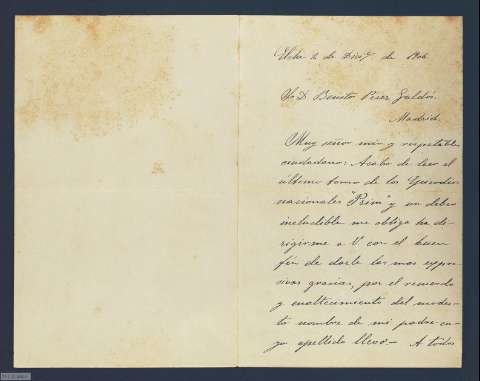 de 1906
Sr D. Benito Perez Galdós.
Madrid.
Muy señor mio y respetable
ciudadano: Acabo de leer el
último tomo de los Episodios
nacionales "Prim" y un deber
ineludible me obliga ha di-
rigirme a V. con el buen
fin de darle las mas expre-
sivas gracias, por el recuerdo
y enaltecimiento del modes-
to nombre de mi padre cu-
yo apellido llevo.— A todos